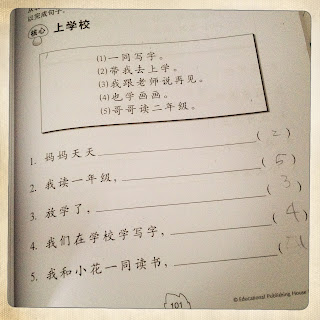 以完成句子。
核心 上学校
(1)一同写字。
(2)带我去上学。
(3)我跟老师说再见。
(4)也学画画。
(5)哥哥读二年级。
1. 妈妈天天 ( 2 )
2. 我读一年级， ( 5 )
3. 放学了， ( 3 )
4. 我们在学校学写字， ( 4 )
5. 我和小花一同读书， ( )
© Educational Publishing House
101